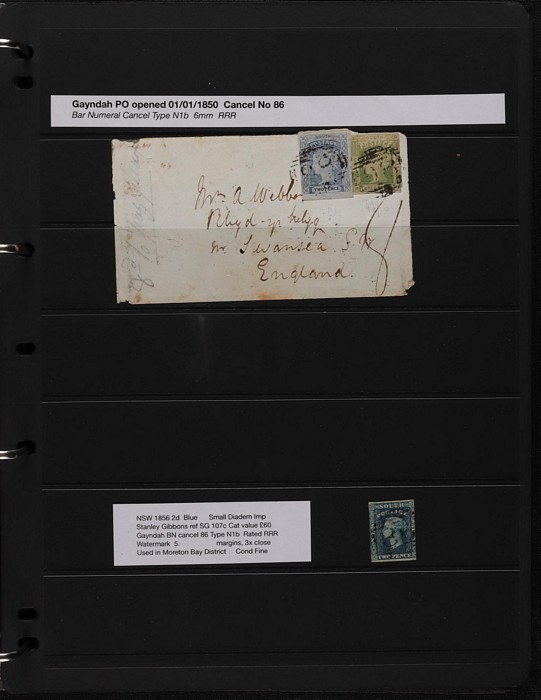 Gayndah PO opened 01/01/1850 Cancel No 86
Bar Numeral Cancel Type N1b 6mm RRR
POSTAGE
TWO PENCE
Mrs A Webber
Rhyd-yr
nr. Swansea S.W
England.
NSW 1856 2d Blue Small Diadem Imp
Stanley Gibbons ref SG 107c Cat value £60
Gayndah BN cancel 86 Type N1b Rated RRR
Watermark 5. margins, 3x close
Used in Moreton Bay District Cond Fine
SOUTH
POSTAGE
TWO PENCE